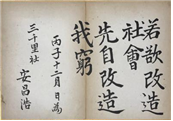 若欲改造
社會
先自改造
我窮
丙子十二月日為
三千里社
安昌浩